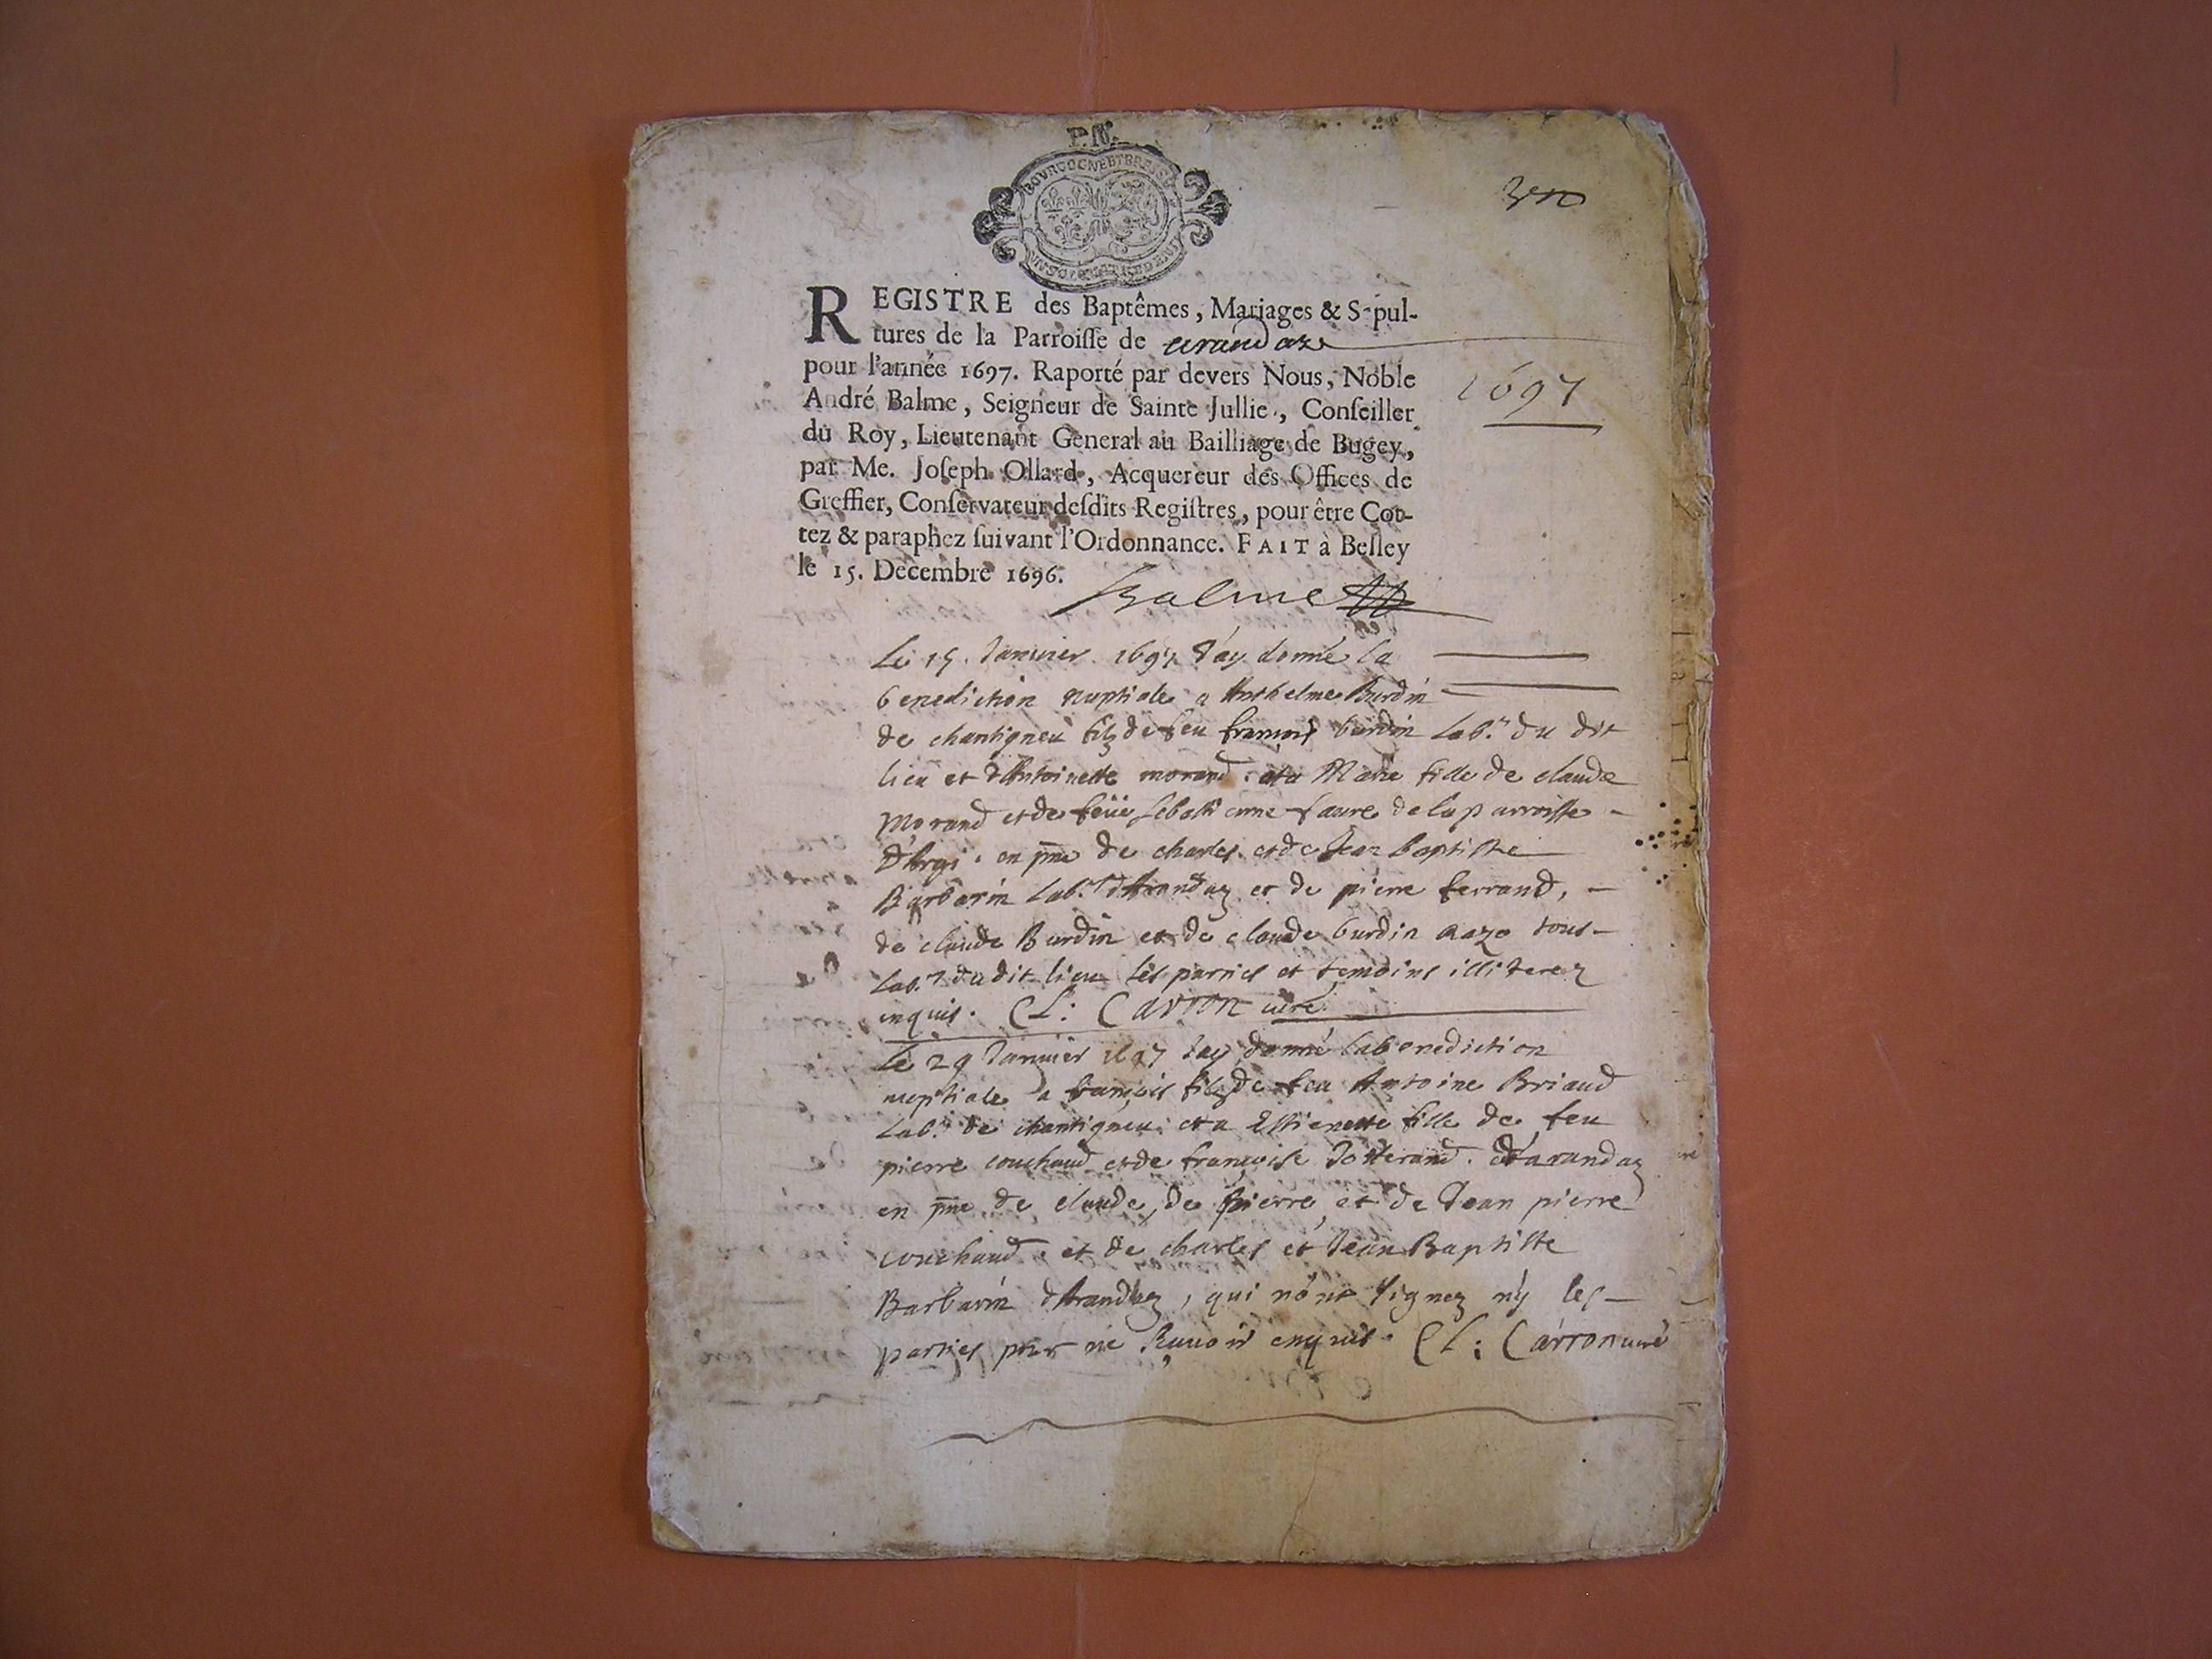 BOURGOGNE ET BRESSE
REGISTRE des Baptêmes, Mariages & Sepul-
tures de la Parroisse de arandaz
pour l'année 1697. Raporté par devers Nous, Noble
1697
André Balme, Seigneur de Sainte Jullie, Conseiller
du Roy, Lieutenant General au Bailliage de Bugey,
par Me. Joseph Ollard, Acquereur des Offices de
Greffier, Conservateur desdits Registres, pour être Cot-
tez & paraphez suivant l'Ordonnance. FAIT à Belley
le 15. Decembre 1696.
Balme
Le 15. Janvier 1697 J'ay donné la
benediction nuptiale a Anthelme Burdin
de chantigneu filz de feu françois burdin Lab.r du dit
lieu et d'Antoinette morand. et a Marie fille de claude
Morand et de feüe sebastienne faure de la parroisse
d'Argi. en pne de charles et de Jean baptiste
Barbarin Lab.rs d'Arandaz et de pierre ferrand,
de claude Burdin et de claude burdin tous
Lab.rs du dit lieu les parties et temoins illiterez
enquis. CL: Carron curé
Le 29 Janvier 1697 Jay donné la benediction
nuptiale a françois filz de feu Antoine Briaud
Lab.r de chantigneu et a Estienette fille de feu
pierre couchaud et de françoise d'arandaz
en pne de claude, de pierre, et de Jean pierre
couchaud et de charles et Jean Baptiste
Barbarin d'Arandaz, qui n'ont signez ny les
parties pour ne sçavoir enquis. CL: Carron curé